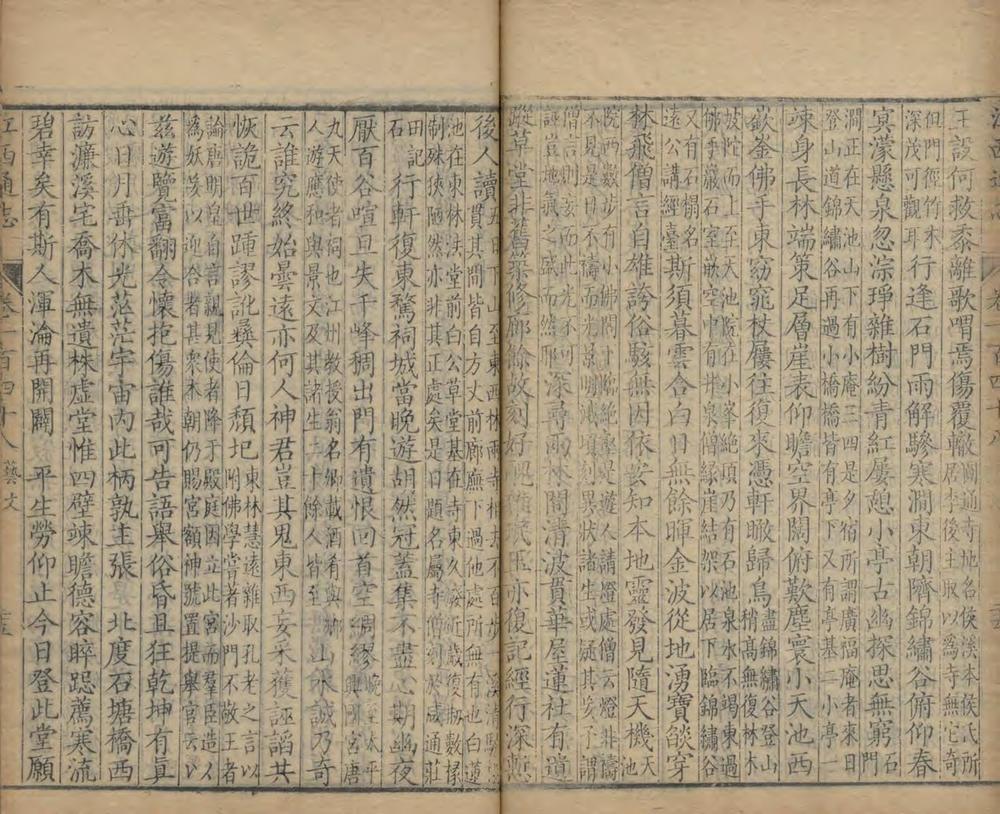 江西通志 卷一百四十八
王設何救黍離歌喟焉傷覆轍圓通寺地名侯溪本侯氏所居李後主取以爲寺無它奇
但門徑竹木深茂可觀耳行逢石門雨解驂寒澗東朝隮錦繡谷俯仰春
冥濛懸泉忽淙琤雜樹紛青紅屢憩小亭古幽探思無窮石門
澗正在天池山下有小庵三四是夕宿所謂廣福庵者來日
登山道錦繡谷再過小橋橋皆有亭下又有亭基二小亭一
竦身長林端策足層崖表仰瞻空界闊俯歎塵寰小天池西
嶔崟佛手東窈窕杖屨往復來憑軒瞰歸鳥盡錦繡谷登山稍高無復林木
坡陀而上至天池院在小峯絶頂乃有石池泉水不竭東過
佛手巖石室嵌空中有井泉僧緣崖結架以居下臨錦繡谷
又有石榻名遠公講經臺斯須暮雲合白日無餘暉金波從地湧寶燄穿
林飛僧言自雄誇俗駭無因依安知本地靈發見隨天機天池
院西數步有小佛閣下瞰絶壑是遊人請燈處僧云燈非禱
不見是日不禱而光景明滅頃刻異狀諸生或疑其妄予謂
僧言則妄而此光不可誣豈地氣之盛而然耶深尋兩林間清波貫華屋蓮社有遺
蹤草堂非舊築修廊餘故刻好語雜珉玉亦復記經行深慙
後人讀五日下山至東西林兩寺相去不百步一溪清駛貫其間皆自方丈前廊廡下過他處所無有也白蓮
池在東林法堂前白公草堂基在寺東久發近歲復剏數椽
制殊狹陋然亦非其正處矣是日題名屬寺僧刻於咸通莊
田記石行軒復東騖祠城當晚遊胡然冠蓋集不盡心期幽夜
厭百谷喧旦失千峰稠出門有遺恨回首空綢繆晚至太平興國宮唐
九天使者祠也江州教授翁名卿載酒肴與鄉人遊應和與景文及其諸生二十餘人皆至山休誠乃奇
云誰究終始曇遠亦何人神君豈其鬼東西妄采獲誣謟其
恢詭百世踵謬訛彞倫日頹圮東林慧遠雜取孔老之言以附佛學嘗著沙門不敬王者
論唐明皇自言親見使者降于殿庭因立此宮而羣臣造
爲妖妄以迎合者甚衆本朝仍賜宮額神號置提舉官云以
茲遊覽富翻令懷抱傷誰哉可告語舉俗昏且狂乾坤有眞
心日月垂休光茫茫宇宙內此柄孰主張 北度石塘橋西
訪濂溪宅喬木無遺株虛堂惟四壁竦瞻德容睟跽薦寒流
碧幸矣有斯人渾淪再開闢 平生勞仰止今日登此堂願
江西通志 卷一百四十八 藝文